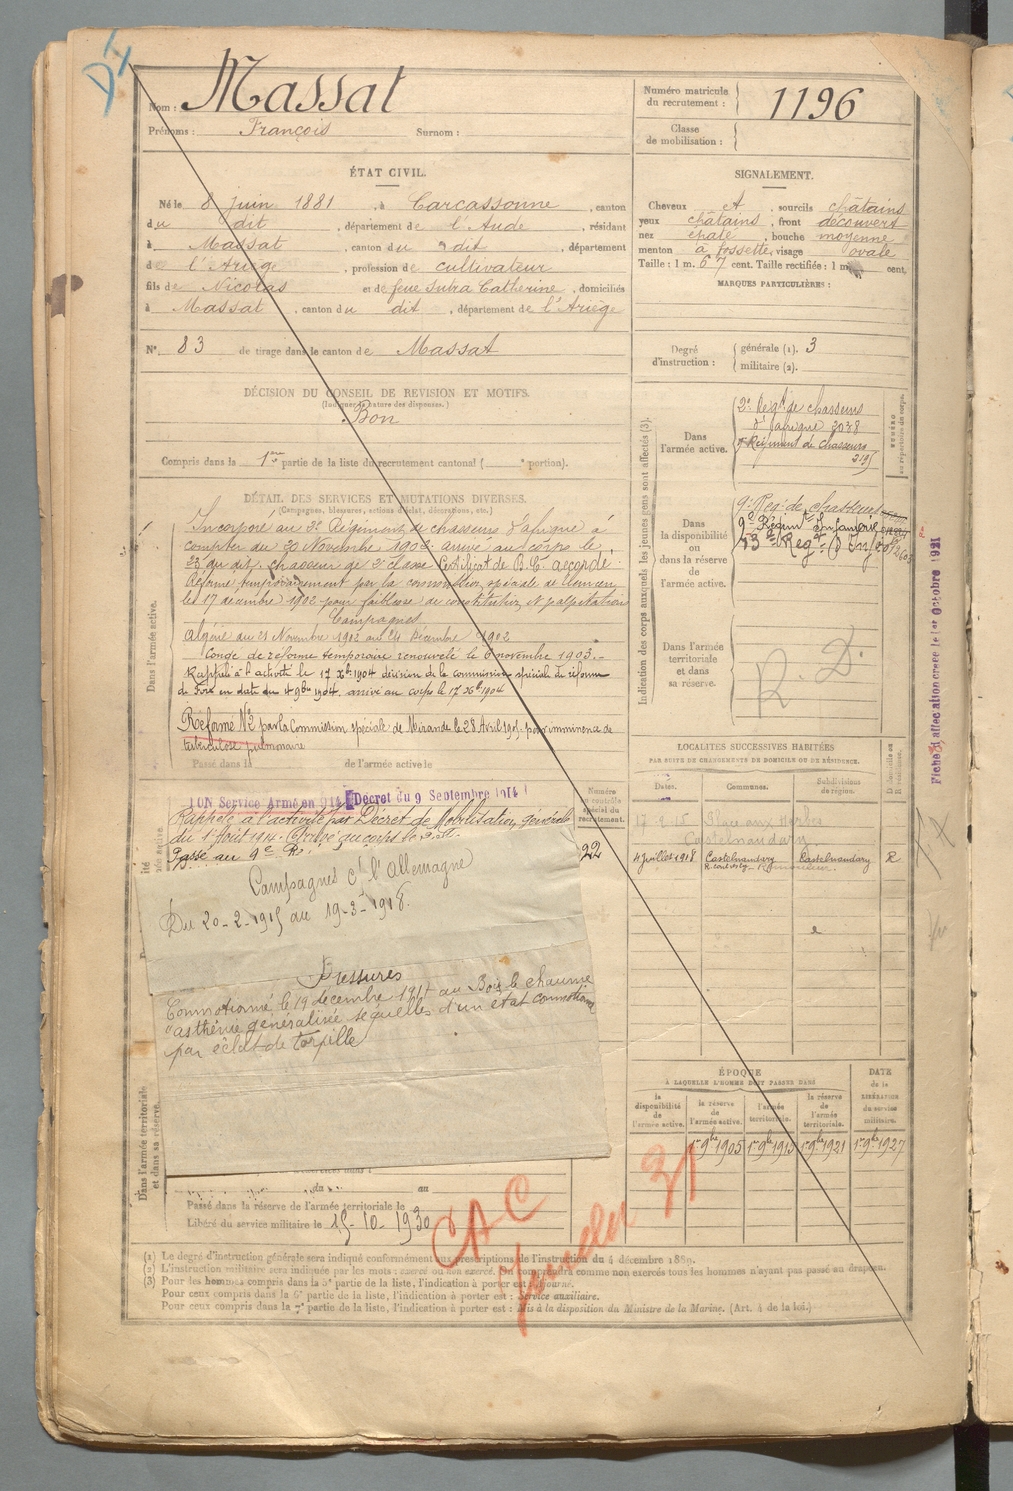 Nom : Massat
Prénoms : François Surnom :
Numéro matricule du recrutement : 1196
Classe de mobilisation :
ÉTAT CIVIL.
Né le 8 juin 1881, à Carcassonne, canton
du dit, département de l'Aude, résidant
à Massat, canton du dit, département
de l'Ariège, profession de cultivateur
fils de Nicolas et de feue Subra Catherine, domiciliés
à Massat, canton du dit, département de l'Ariège
N° 83 de tirage dans le canton de Massat
SIGNALEMENT.
Cheveux et, sourcils châtains
yeux châtains, front découvert
nez épaté, bouche moyenne
menton à fossette, visage ovale
Taille : 1 m. 67 cent. Taille rectifiée : 1 m. cent.
MARQUES PARTICULIÈRES :
Degré d'instruction : générale (1). 3
militaire (2).
DÉCISION DU CONSEIL DE REVISION ET MOTIFS.
(Indiquer la nature des dispenses.)
Bon
Compris dans la 1ère partie de la liste du recrutement cantonal ( portion).
DÉTAIL DES SERVICES ET MUTATIONS DIVERSES.
(Campagnes, blessures, actions d'éclat, décorations, etc.)
Dans l'armée active.
Incorporé au 2e Régiment de chasseurs d'afrique à
compter du 20 Novembre 1902 arrivé au corps le
23 du dit, chasseur de 2e classe Certificat de B.C. accordé.
Réformé temporairement par la commission spéciale de
les 17 décembre 1902 pour faiblesse de constitution et palpitation
Campagnes
Algérie du 21 Novembre 1902 au 24 Décembre 1902
Congé de réforme temporaire renouvelé le 6 novembre 1903.-
Rappelé à l'activité le 17 Xbre 1904 décision de la commission spéciale de réforme
de Foix en date du 9bre 1904, arrivé au corps le 17 Xbre 1904
Réformé N°2 par la Commission spéciale de Mirande le 28 Avril 1905 pour imminence de
tuberculose pulmonaire
Passé dans la de l'armée active le
Service Armé en 914 Décret du 9 Septembre 1914
Rappelé à l'activité par Décret de Mobilisation générale
du 1er Août 1914. Arrivé au corps le
Passé au 9e R.
Campagnes ct l'Allemagne
Du 20-2-1915 au 19-3-1918.
Blessures
Commotionné le 19 décembre 1917 au Bois le chaume
"asthénie généralisée séquelles d'un état commotionnel
par éclat de torpille
Dans l'armée territoriale et dans sa réserve.
du au
Passé dans la réserve de l'armée territoriale le
Libéré du service militaire le 15-10-1930
Indication des corps auxquels les jeunes gens sont affectés (3).
Dans l'armée active.
2e Régt de chasseurs
d'afrique 3038
Régiment de chasseurs
NUMÉRO au répertoire du corps.
Dans la disponibilité ou dans la réserve de l'armée active.
9e Reg. de chasseurs
9e Régimt Infanterie
Dans l'armée territoriale et dans sa réserve.
R. D.
LOCALITÉS SUCCESSIVES HABITÉES
PAR SUITE DE CHANGEMENTS DE DOMICILE OU DE RÉSIDENCE.
Dates. Communes. Subdivisions de région. D domicile ou R résidence.
17-2-15 Place aux Herbes
Castelnaudary
4 Juillet 1918 Castelnaudary Castelnaudary R
Numéro au contrôle spécial du recrutement.
22
ÉPOQUE
À LAQUELLE L'HOMME DOIT PASSER DANS
la disponibilité de l'armée active.
la réserve de l'armée active. 1er 9bre 1905
l'armée territoriale. 1er 9bre 1915
la réserve de l'armée territoriale. 1er 9bre 1921
DATE de la LIBÉRATION du service militaire. 1er 9bre 1927
CAC
31
Fiche d'affectation créée le 1er Octobre 1921
(1) Le degré d'instruction générale sera indiqué conformément aux prescriptions de l'instruction du 4 décembre 1889.
(2) L'instruction militaire sera indiquée par les mots : exercé ou non exercé. On comprendra comme non exercés tous les hommes n'ayant pas passé au drapeau.
(3) Pour les hommes compris dans la 5e partie de la liste, l'indication à porter est : Ajourné.
Pour ceux compris dans la 6e partie de la liste, l'indication à porter est : Service auxiliaire.
Pour ceux compris dans la 7e partie de la liste, l'indication à porter est : Mis à la disposition du Ministre de la Marine. (Art. 4 de la loi.)